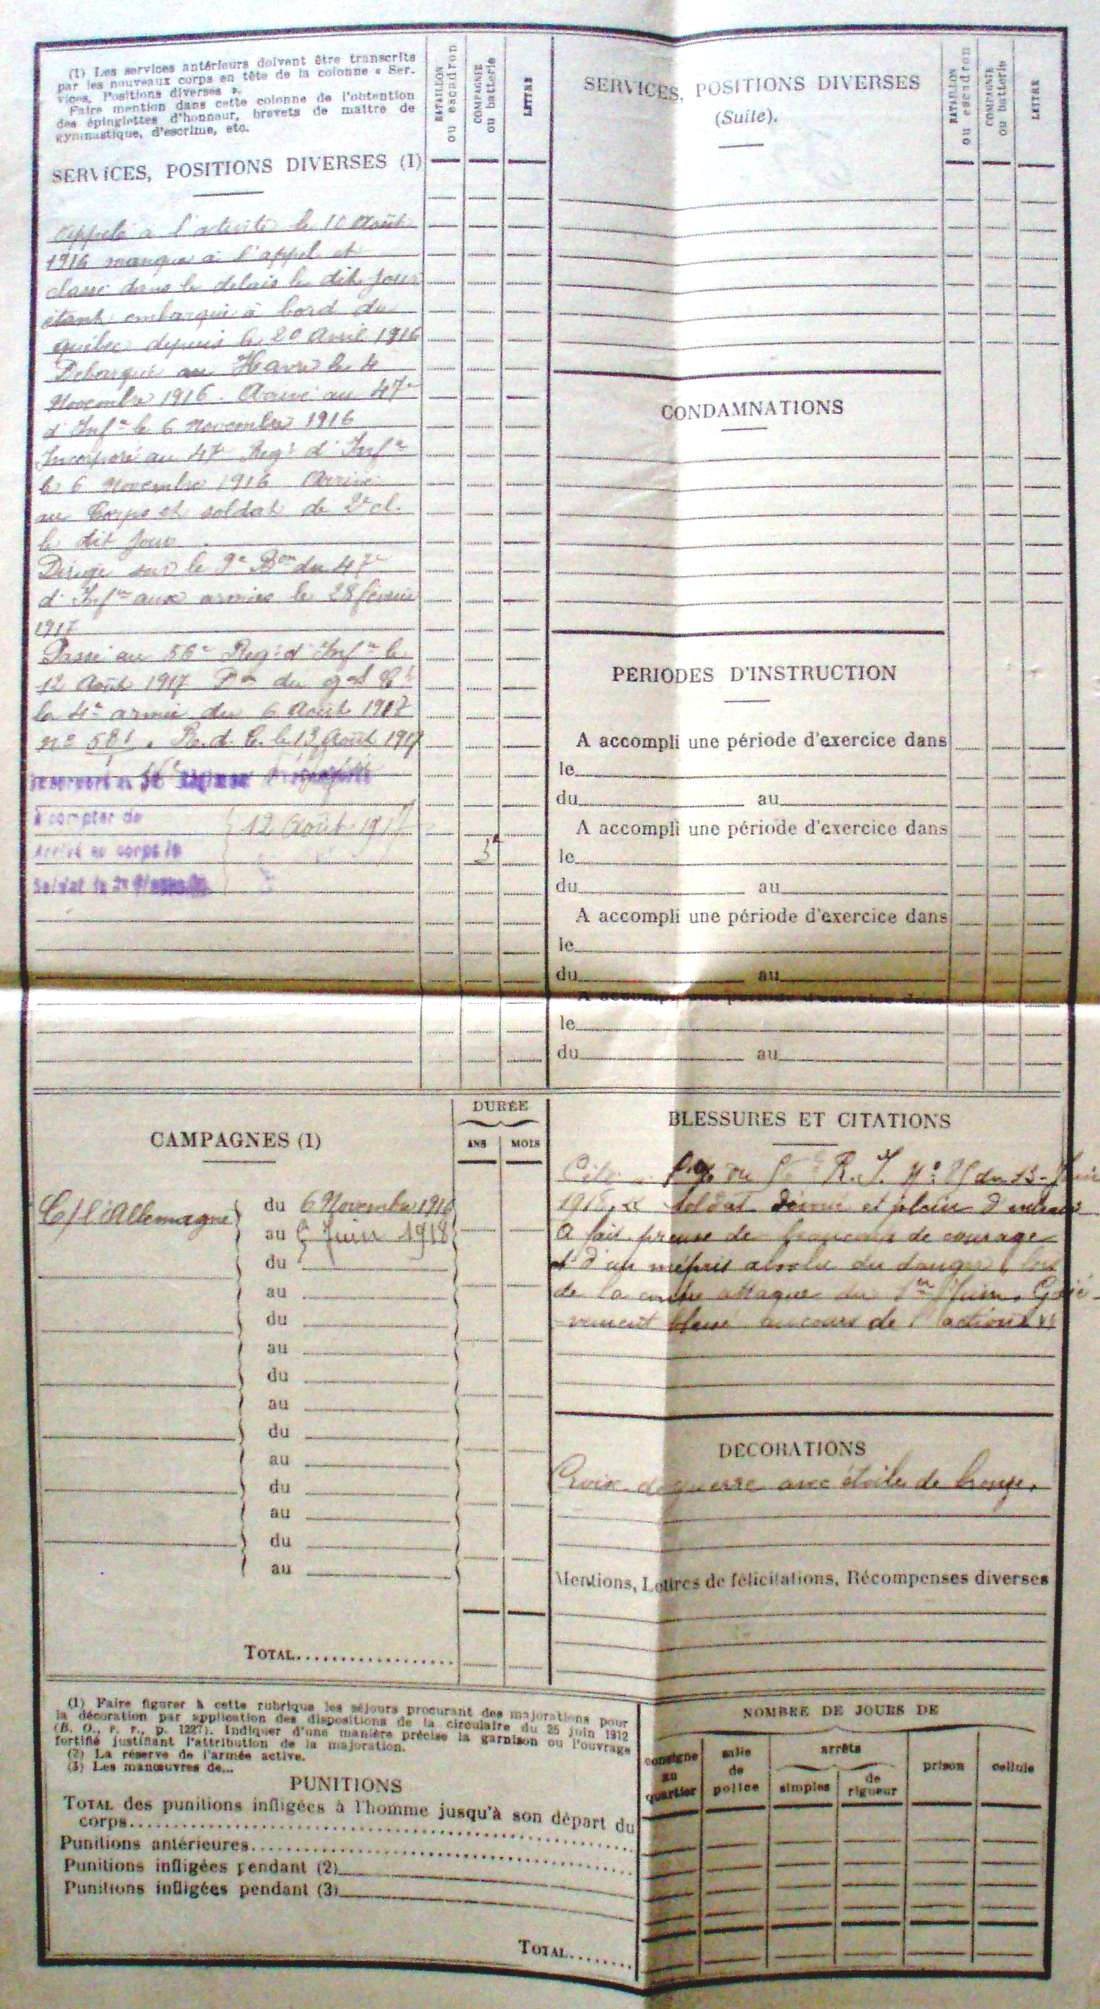 (1) Les services antérieurs doivent être transcrits
par les nouveaux corps en tête de la colonne « Ser-
vices, Positions diverses ».
Faire mention dans cette colonne de l'obtention
des épinglettes d'honneur, brevets de maître de
gymnastique, d'escrime, etc.
SERVICES, POSITIONS DIVERSES (1)
BATAILLON
ou escadron
COMPAGNIE
ou batterie
LETTRE
Appelé à l'activité le 10 Août
1916 manque à l'appel et
classé dans le délais le dit jour
étant embarqué à bord du
Québec depuis le 20 Avril 1916
Débarqué au Havre le 4
Novembre 1916. Arrivé au 47e
d'Infie le 6 Novembre 1916
Incorporé au 47e Regt d'Infie
le 6 Novembre 1916 Arrivé
au Corps et soldat de 2e cl.
le dit jour
Dirigé sur le 9e Bon du 47e
d'Infie aux armées le 28 février
1917
Passé au 56e Regt d'Infie le
12 Août 1917 du gal Ct
la 4e armée du 6 Août 1917
no 581. R. d. C. le 13 Août 1917
56e
à compter du
Arrivé au corps le
12 Août 1917
Soldat de 2e classe
5e
SERVICES, POSITIONS DIVERSES
(Suite).
BATAILLON
ou escadron
COMPAGNIE
ou batterie
LETTRE
CONDAMNATIONS
PERIODES D'INSTRUCTION
A accompli une période d'exercice dans
le
du au
A accompli une période d'exercice dans
le
du au
A accompli une période d'exercice dans
le
du au
A accompli une période d'exercice dans
le
du au
CAMPAGNES (1)
DURÉE
ANS MOIS
C/ l'Allemagne
du 6 Novembre 1916
au Juin 1918
du
au
du
au
du
au
du
au
du
au
du
au
BLESSURES ET CITATIONS
R.I. No du 13 Juin
1918, « soldat dévoué et plein d'entrain
A fait preuve de beaucoup de courage
et d'un mépris absolu du danger lors
de la contre attaque du 1er Juin. Griè-
vement blessé au cours de l'action »
DECORATIONS
Croix de guerre avec étoile de bronze.
Mentions, Lettres de félicitations, Récompenses diverses
TOTAL
(1) Faire figurer à cette rubrique les séjours procurant des majorations pour
la décoration par application des dispositions de la circulaire du 25 juin 1912
(B. O., P. r., p. 1227). Indiquer d'une manière précise la garnison ou l'ouvrage
fortifié justifiant l'attribution de la majoration.
(2) La réserve de l'armée active.
(3) Les manœuvres de...
PUNITIONS
TOTAL des punitions infligées à l'homme jusqu'à son départ du
corps
Punitions antérieures
Punitions infligées pendant (2)
Punitions infligées pendant (3)
TOTAL
NOMBRE DE JOURS DE
consigne
au
quartier
salle
de
police
arrêts
simples
de
rigueur
prison
cellule